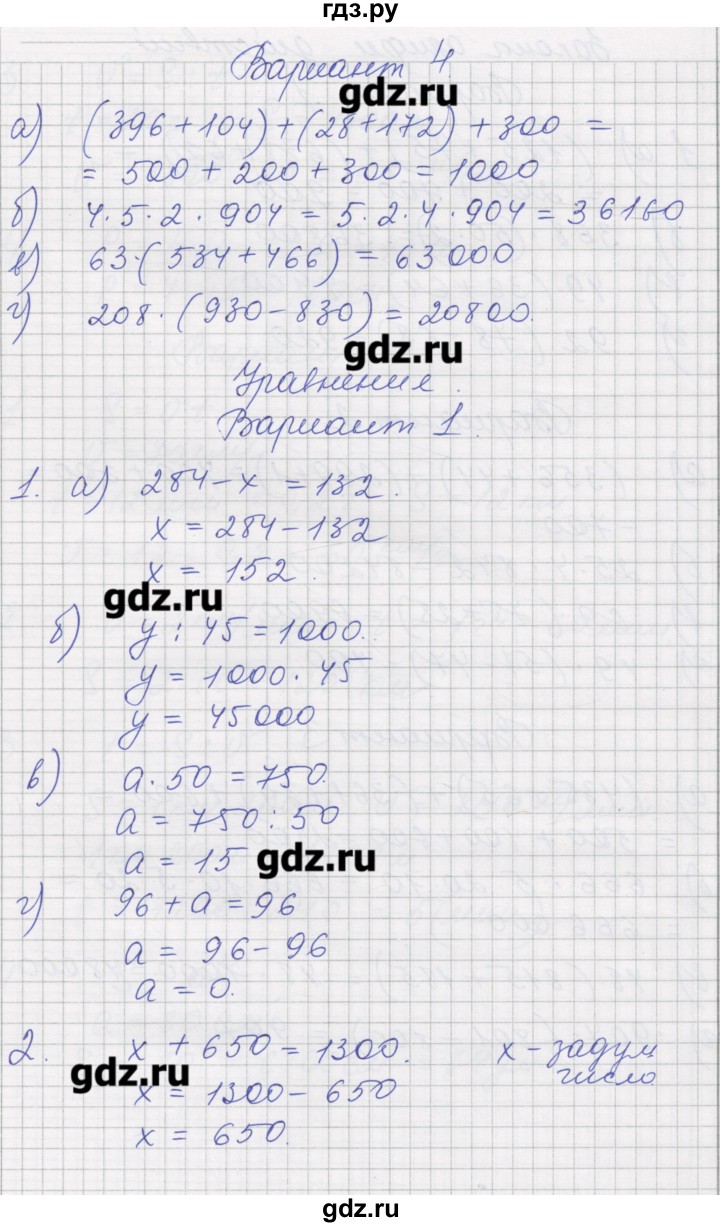 гдз.ру
Вариант 4.
gdz.ru
а) (396 + 104) + (28 + 172) + 300 =
= 500 + 200 + 300 = 1000
б) 4 · 5 · 2 · 904 = 5 · 2 · 4 · 904 = 36160
в) 63 · (534 + 466) = 63 000
г) 208 · (930 − 830) = 20800.
gdz.ru
Уравнения.
Вариант 1.
1. а) 284 − x = 132.
x = 284 − 132
x = 152.
gdz.ru
б) y : 45 = 1000.
y = 1000 · 45
y = 45000
в) a · 50 = 750.
a = 750 : 50
a = 15
gdz.ru
г) 96 + a = 96
a = 96 − 96
a = 0.
2. x + 650 = 1300. x − задум
число
gdz.ru
x = 1300 − 650
x = 650.
gdz.ru